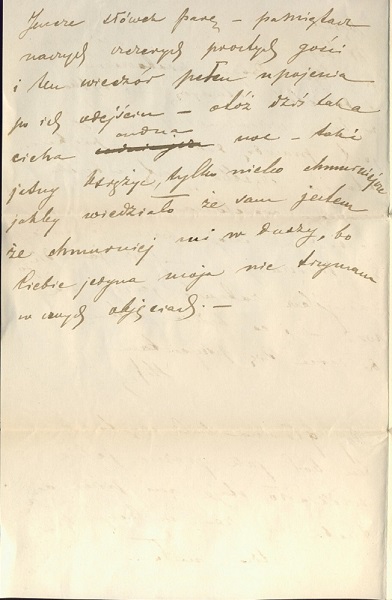 Jeszcze słówek parę – pamiętasz
naszych szczerych prostych gości
i ten wieczór pełen upojenia
po ich odejściu – otóż dziś taka
cicha cudna noc – taki
jasny księżyc, tylko niebo chmurniejsze
jakby wiedziało że sam jestem
że chmurniej mi w duszy, bo
Ciebie jedyna moja nie trzymam
w swych objęciach. –